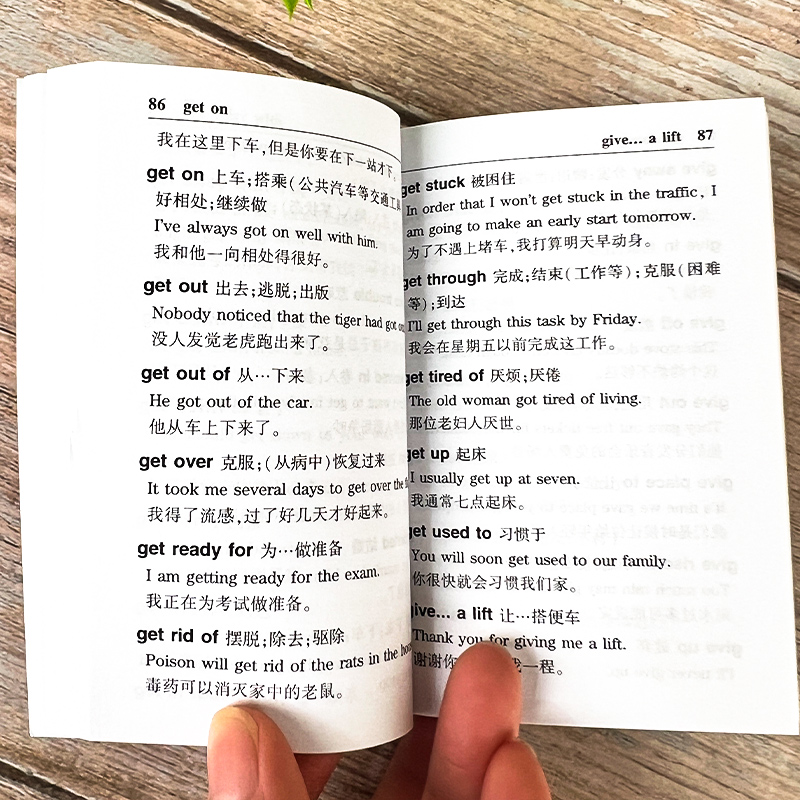 86 get on
我在这里下车,但是你要在下一站才下。
get on 上车;搭乘(公共汽车等交通工具
好相处;继续做
I've always got on well with him.
我和他一向相处得很好。
get out 出去;逃脱;出版
Nobody noticed that the tiger had got
没人发觉老虎跑出来了。
get out of 从…下来
He got out of the car.
他从车上下来了。
get over 克服;(从病中)恢复过来
It took me several days to get over the
我得了流感,过了好几天才好起来。
get ready for 为…做准备
I am getting ready for the exam.
我正在为考试做准备。
get rid of 摆脱;除去;驱除
Poison will get rid of the rats in the
毒药可以消灭家中的老鼠。
give... a lift 87
get stuck 被困住
In order that I won't get stuck in the traffic, I
am going to make an early start tomorrow.
为了不遇上堵车,我打算明天早动身。
get through 完成;结束(工作等);克服(困难
等);到达
I'll get through this task by Friday.
我会在星期五以前完成这工作。
get tired of 厌烦;厌倦
The old woman got tired of living.
那位老妇人厌世。
get up 起床
I usually get up at seven.
我通常七点起床。
get used to 习惯于
You will soon get used to our family.
你很快就会习惯我们家。
give... a lift 让…搭便车
Thank you for giving me a lift.
谢谢你 我一程。